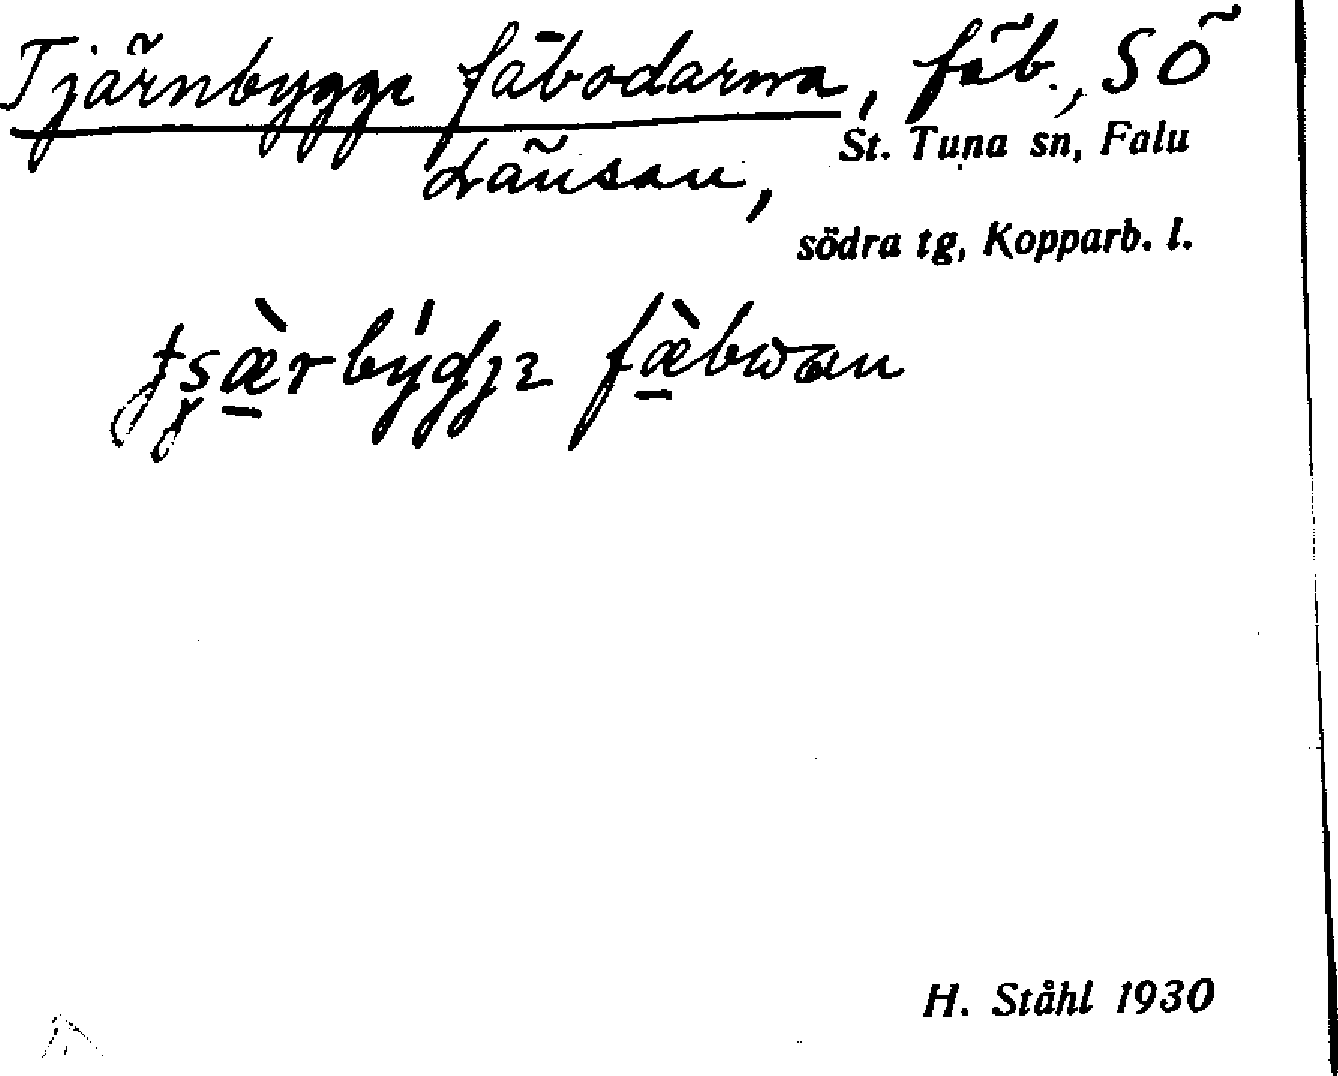 Tjärnbygge fäbodarna, fäb., SÖ
St. Tuna sn, Falu
Länsan,
södra tg, Kopparb. l.
H. Ståhl 1930